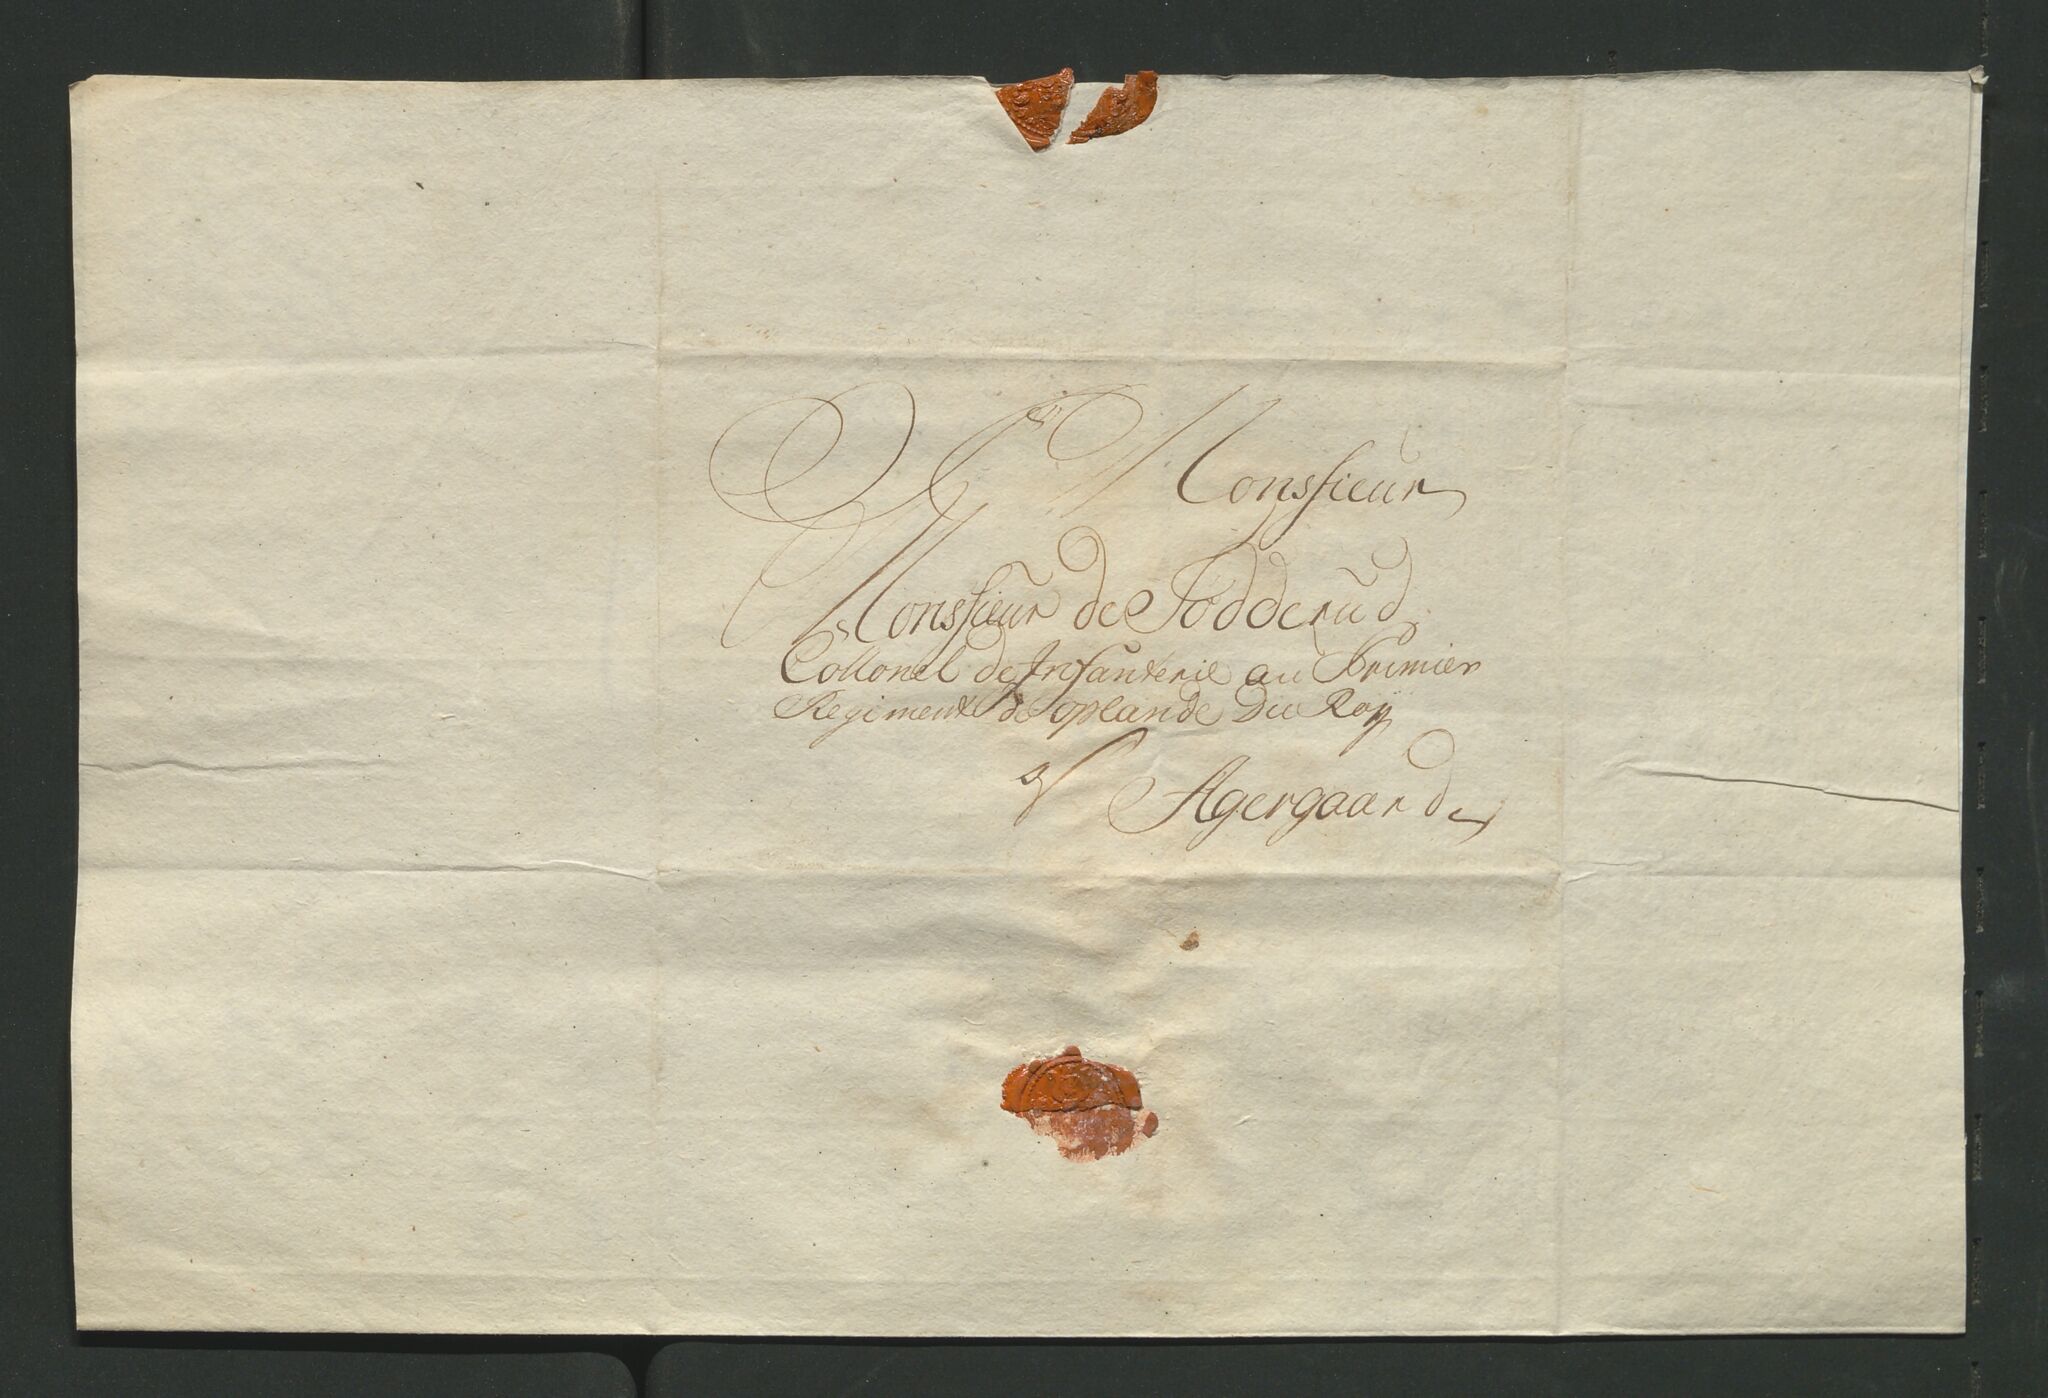 Monsieur
Monsieur de Tödderud
Collonel de Infanterie au Primier
Regiment de oplande Du Roy
Agergaard